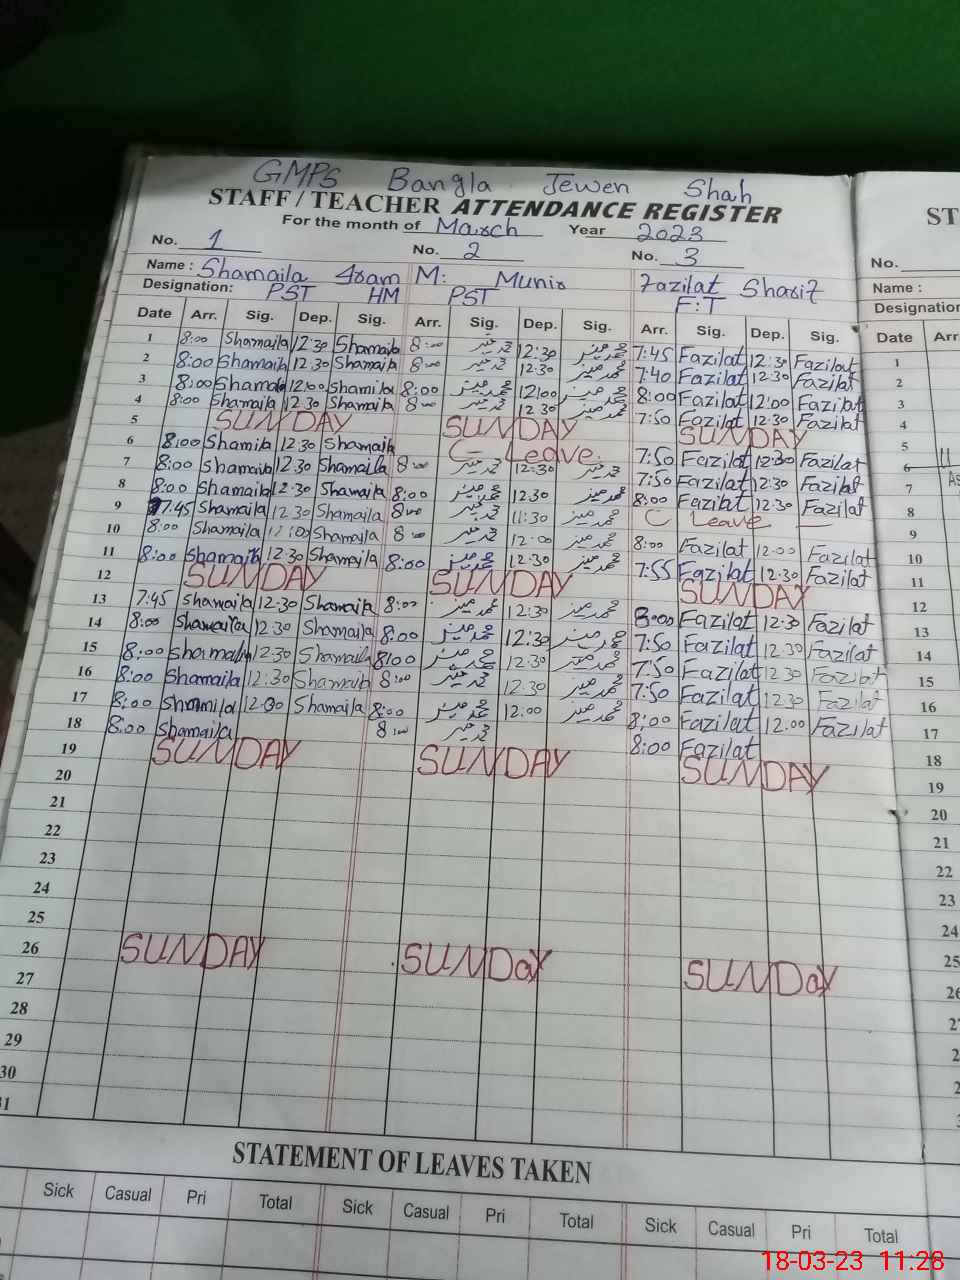 GMPS Bangla Jewen Shah
STAFF / TEACHER ATTENDANCE REGISTER ST
For the month of March Year 2023
No. 1 No. 2 No. 3 No.
Name : Shamaila Iram M: Munir Fazilat Sharif Name :
Designation: PST HM PST F:T Designation
Date Arr. Sig. Dep. Sig. Arr. Sig. Dep. Sig. Arr. Sig. Dep. Sig. Date Arr
1 8:00 Shamaila 12:30 Shamaila 8:00 محمد منیر 12:30 محمد منیر 7:45 Fazilat 12:30 Fazilat 1
2 8:00 Shamaila 12:30 Shamaila 8:00 محمد منیر 12:30 محمد منیر 7:40 Fazilat 12:30 Fazilat 2
3 8:00 Shamaila 12:00 Shamila 8:00 محمد منیر 12:00 محمد منیر 8:00 Fazilat 12:00 Fazilat 3
4 8:00 Shamaila 12:30 Shamaila 8:00 محمد منیر 12:30 محمد منیر 7:50 Fazilat 12:30 Fazilat 4
5 SUNDAY SUNDAY SUNDAY 5
6 8:00 Shamila 12:30 Shamaila C- Leave 7:50 Fazilat 12:30 Fazilat 6
7 8:00 Shamaila 12:30 Shamaila 8:00 محمد منیر 12:30 محمد منیر 7:50 Fazilat 12:30 Fazilat 7
8 8:00 Shamaila 12:30 Shamaila 8:00 محمد منیر 12:30 محمد منیر 8:00 Fazilat 12:30 Fazilat 8
9 7:45 Shamaila 12:30 Shamaila 8:00 محمد منیر 11:30 محمد منیر C Leave 9
10 8:00 Shamaila 12:00 Shamaila 8:00 محمد منیر 12:00 محمد منیر 8:00 Fazilat 12:00 Fazilat 10
11 8:00 Shamaila 12:30 Shamaila 8:00 محمد منیر 12:30 محمد منیر 7:55 Fazilat 12:30 Fazilat 11
12 SUNDAY SUNDAY SUNDAY 12
13 7:45 Shamaila 12:30 Shamaila 8:00 محمد منیر 12:30 محمد منیر 8:00 Fazilat 12:30 Fazilat 13
14 8:00 Shamaila 12:30 Shamaila 8:00 محمد منیر 12:30 محمد منیر 7:50 Fazilat 12:30 Fazilat 14
15 8:00 Shamaila 12:30 Shamaila 8:00 محمد منیر 12:30 محمد منیر 7:50 Fazilat 12:30 Fazilat 15
16 8:00 Shamaila 12:30 Shamaila 8:00 محمد منیر 12:30 محمد منیر 7:50 Fazilat 12:30 Fazilat 16
17 8:00 Shamila 12:00 Shamaila 8:00 محمد منیر 12:00 محمد منیر 8:00 Fazilat 12:00 Fazilat 17
18 8:00 Shamaila 8:00 محمد منیر 8:00 Fazilat 18
19 SUNDAY SUNDAY SUNDAY 19
20 20
21 21
22 22
23 23
24 24
25 25
26 SUNDAY SUNDAY SUNDAY 26
27
28
29
30
31
STATEMENT OF LEAVES TAKEN
Sick Casual Pri Total Sick Casual Pri Total Sick Casual Pri Total
18-03-23 11:28